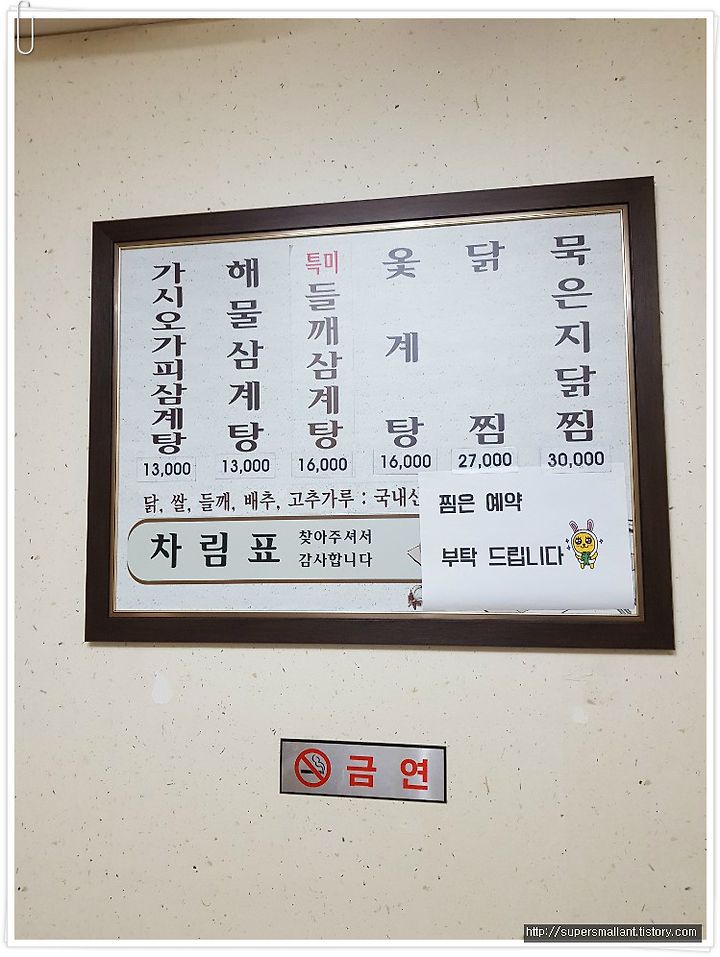 가시오가피삼계탕
13,000
해물삼계탕
13,000
특미
들깨삼계탕
16,000
옻계탕
16,000
닭찜
27,000
묵은지닭찜
30,000
닭, 쌀, 들깨, 배추, 고추가루 : 국내산
차림표
찾아주셔서
감사합니다
찜은 예약
부탁 드립니다
금연
http://supersmallant.tistory.com